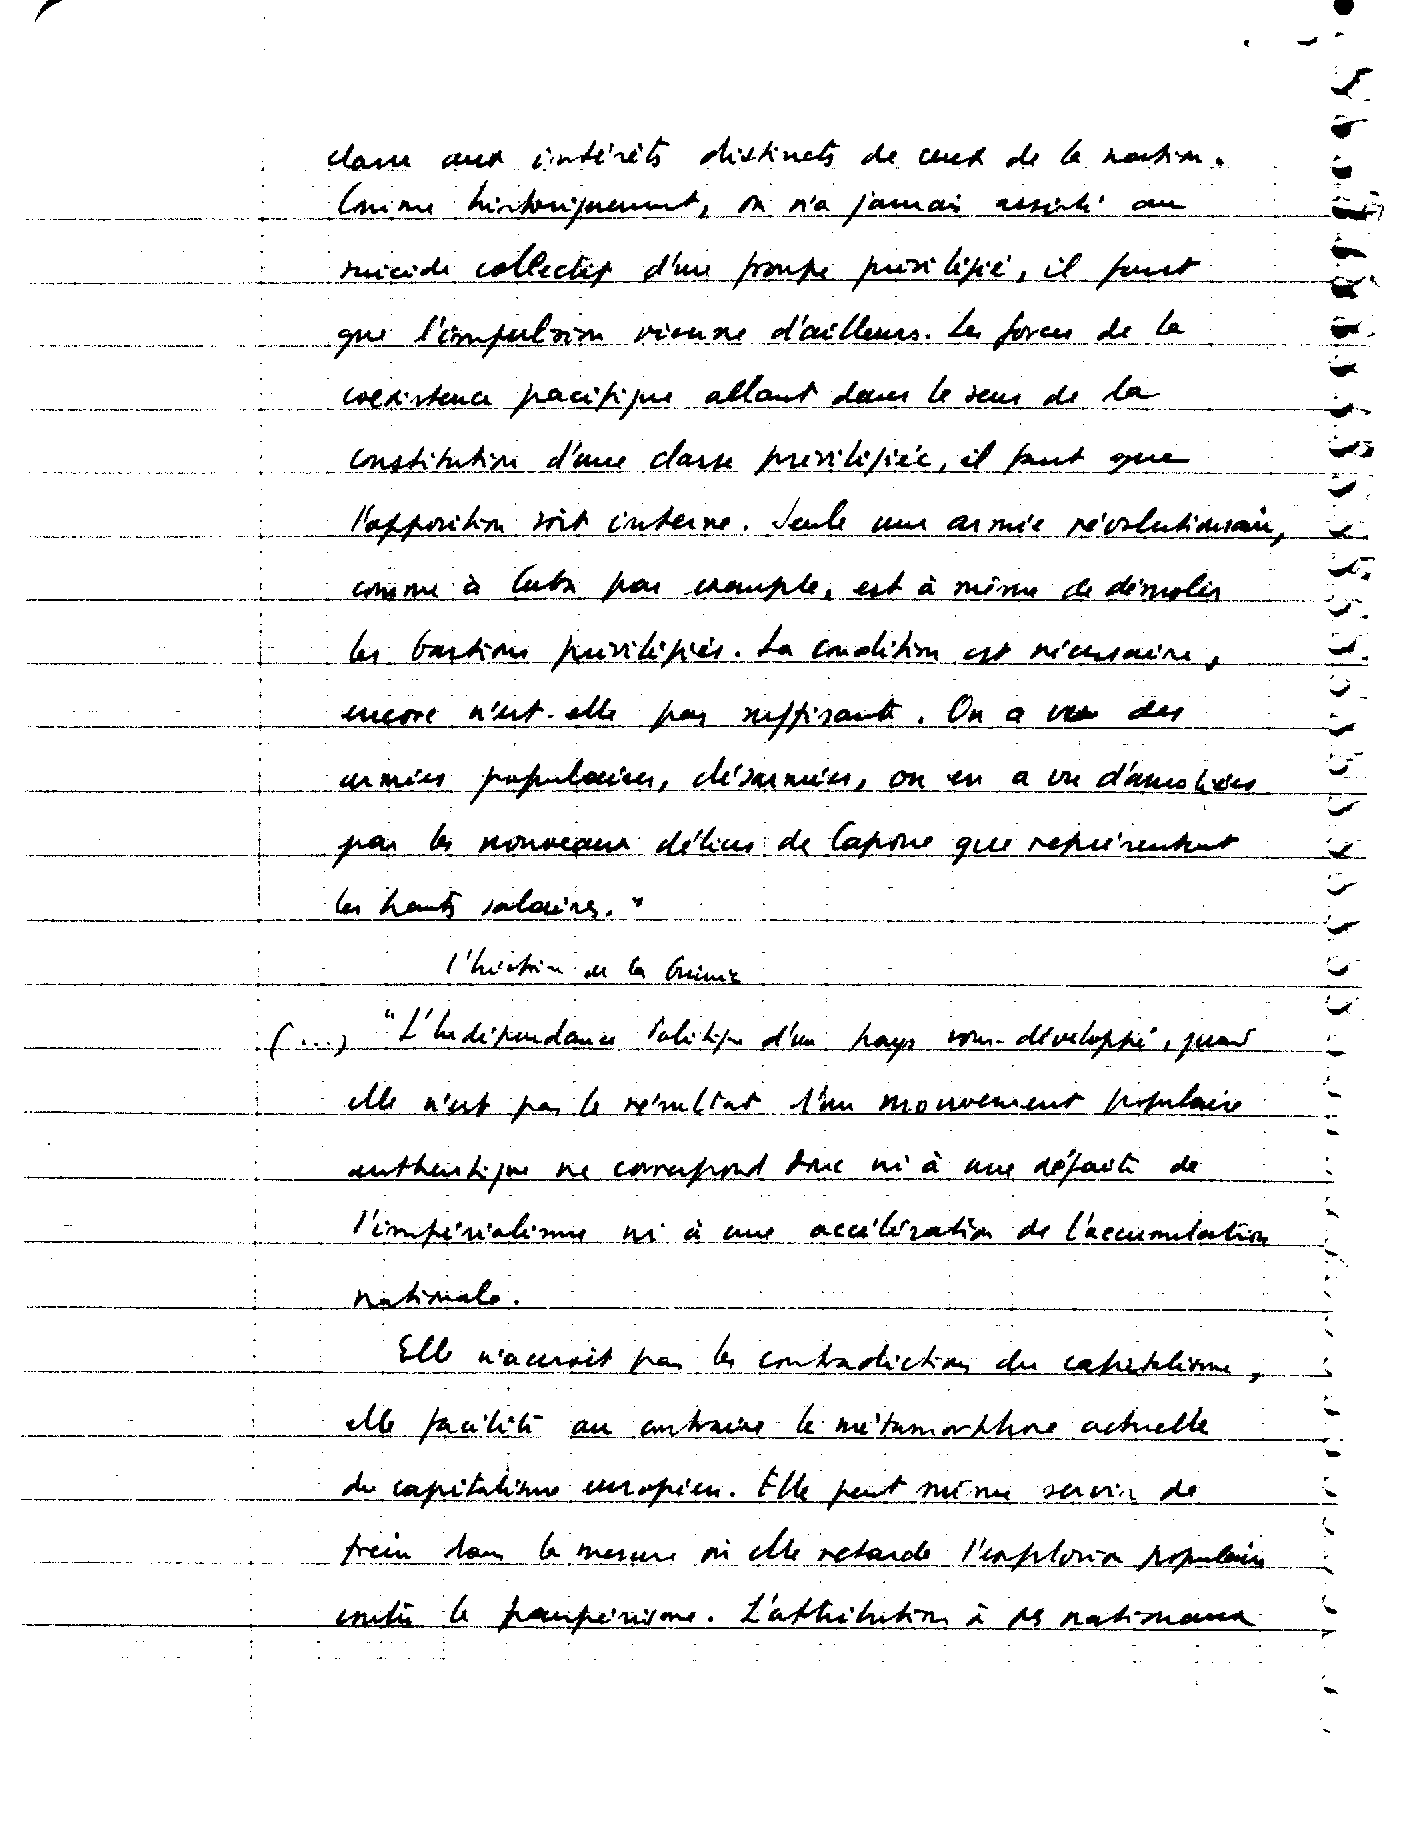 classe aux intérêts distincts de ceux de la nation.
Comme historiquement, on n'a jamais assisté au
suicide collectif d'un groupe privilégié, il faut
que l'impulsion vienne d'ailleurs. Les forces de la
coexistence pacifique allant dans le sens de la
constitution d'une classe privilégiée, il faut que
l'opposition soit interne. Seule une armée révolutionnaire,
comme à Cuba par exemple, est à même de démolir
les bastions privilégiés. La condition est nécessaire,
encore n'est-elle pas suffisante. On a vu des
armées populaires, désarmées, on en a vu d'amollies
par les nouveaux délices de Capoue que représentent
les hauts salaires."
l'histoire de la Guinée
(...) "L'Indépendance Politique d'un pays sous-développé, quand
elle n'est pas le résultat d'un mouvement populaire
authentique ne correspond donc ni à une défaite de
l'impérialisme ni à une accélération de l'accumulation
nationale.
Elle n'accroît pas les contradictions du capitalisme,
elle facilite au contraire la métamorphose actuelle
du capitalisme européen. Elle peut même servir de
frein dans la mesure où elle retarde l'explosion populaire
contre le paupérisme. L'attribution à des nationaux